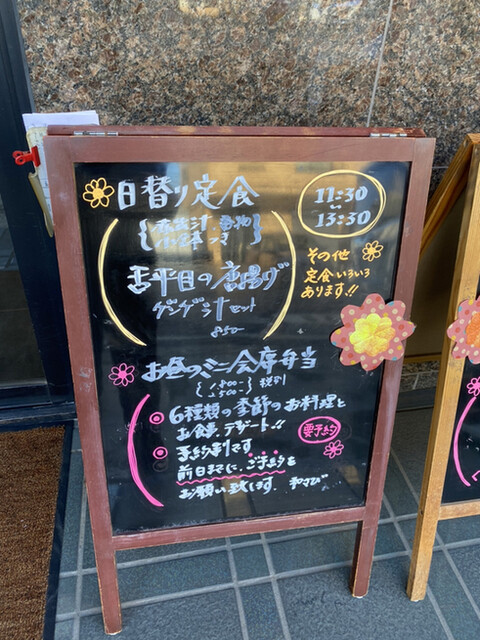 日替り定食
11:30
〜
13:30
舌平目の唐揚げ
ゲンゲラナセット
850-
その他
定食いろいろ
あります!!
お昼のミニ会席弁当
1,800-
2,500-
税別
6種類の季節のお料理と
お食事、デザート!!
要予約
予約制です
前日までに、ご予約を
お願い致します. わさび